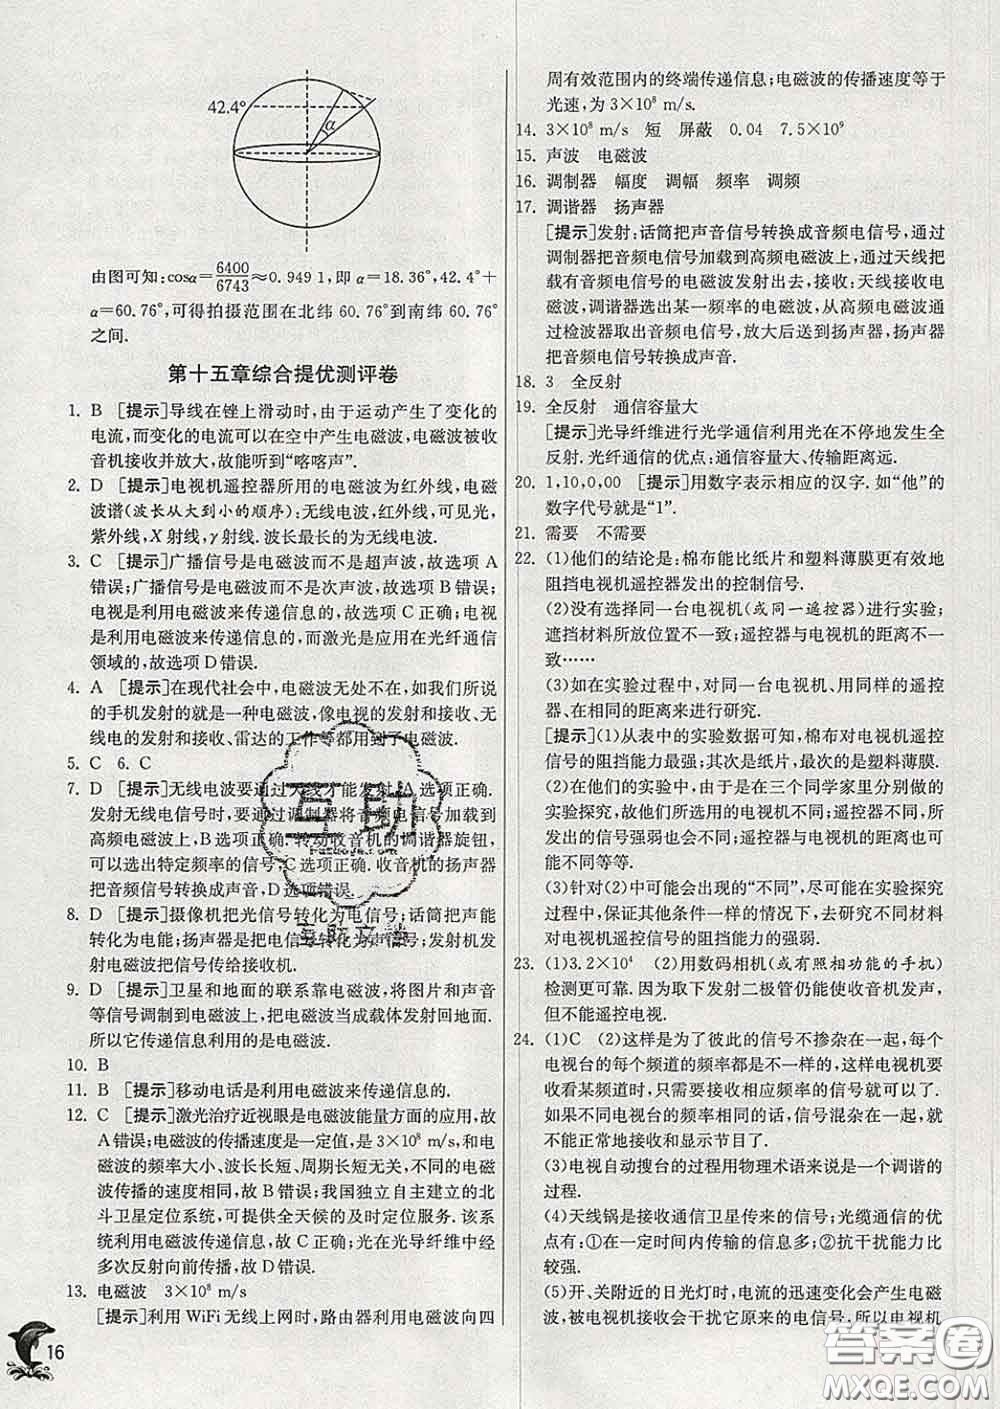 42.4°
α
由图可知:cosα=6400/6743≈0.949 1,即 α=18.36°,42.4°+
α=60.76°,可得拍摄范围在北纬 60.76°到南纬 60.76°
之间.
第十五章综合提优测评卷
1. B [提示]导线在锉上滑动时,由于运动产生了变化的
电流,而变化的电流可以在空中产生电磁波,电磁波被收
音机接收并放大,故能听到“喀喀声”.
2. D [提示]电视机遥控器所用的电磁波为红外线,电磁
波谱(波长从大到小的顺序):无线电波,红外线,可见光,
紫外线,X 射线,γ射线.波长最长的为无线电波.
3. C [提示]广播信号是电磁波而不是超声波,故选项 A
错误;广播信号是电磁波而不是次声波,故选项 B 错误;
电视是利用电磁波来传递信息的,故选项 C 正确;电视
是利用电磁波来传递信息的,而激光是应用在光纤通信
领域的,故选项 D 错误.
4. A [提示]在现代社会中,电磁波无处不在,如我们所说
的手机发射的就是一种电磁波,像电视的发射和接收、无
线电的发射和接收、雷达的工作等都用到了电磁波.
5. C 6. C
7. D [提示]无线电波要通过天线才能发射,A 选项正确.
发射无线电信号时,要通过调制器将音频电信号加载到
高频电磁波上,B 选项正确.转动收音机的调谐器旋钮,
可以选出特定频率的信号,C 选项正确.收音机的扬声器
把音频信号转换成声音,D 选项错误.
8. D [提示]摄像机把光信号转化为电信号;话筒把声能
转化为电能;扬声器是把电信号转化为声信号;发射机发
射电磁波把信号传给接收机.
9. D [提示]卫星和地面的联系靠电磁波,将图片和声音
等信号调制到电磁波上,把电磁波当成载体发射回地面.
所以它传递信息利用的是电磁波.
10. B
11. B [提示]移动电话是利用电磁波来传递信息的.
12. C [提示]激光治疗近视眼是电磁波能量方面的应用,故
A 错误;电磁波的传播速度是一定值,是 3×10⁸ m/s,和电
磁波的频率大小、波长长短、周期长短无关,不同的电磁
波传播的速度相同,故 B 错误;我国独立自主建立的北
斗卫星定位系统,可提供全天候的及时定位服务.该系
统利用电磁波传递信息,故 C 正确;光在光导纤维中经
多次反射向前传播,故 D 错误.
13. 电磁波 3×10⁸ m/s
[提示]利用 WiFi 无线上网时,路由器利用电磁波向四
16
周有效范围内的终端传递信息;电磁波的传播速度等于
光速,为 3×10⁸ m/s.
14. 3×10⁸ m/s 短 屏蔽 0.04 7.5×10⁹
15. 声波 电磁波
16. 调制器 幅度 调幅 频率 调频
17. 调谐器 扬声器
[提示]发射:话筒把声音信号转换成音频电信号,通过
调制器把音频电信号加载到高频电磁波上,通过天线把
带有音频电信号的电磁波发射出去,接收:天线接收电
磁波,调谐器选出某一频率的电磁波,从高频电磁波中
通过检波器取出音频电信号,放大后送到扬声器,扬声器
把音频电信号转换成声音.
18. 3 全反射
19. 全反射 通信容量大
[提示]光导纤维进行光学通信利用光在不停地发生全
反射.光纤通信的优点:通信容量大、传输距离远.
20. 1,10,0,00 [提示]用数字表示相应的汉字.如“他”的
数字代号就是“1”.
21. 需要 不需要
22. (1)他们的结论是:棉布能比纸片和塑料薄膜更有效地
阻挡电视机遥控器发出的控制信号.
(2)没有选择同一台电视机(或同一遥控器)进行实验;
遮挡材料所放位置不一致;遥控器与电视机的距离不一
致……
(3)如在实验过程中,对同一台电视机、用同样的遥控
器、在相同的距离来进行研究.
[提示](1)从表中的实验数据可知,棉布对电视机遥控
信号的阻挡能力最强;其次是纸片,最次的是塑料薄膜.
(2)在他们的实验中,由于是在三个同学家里分别做的
实验探究,故他们所选用的电视机不同,遥控器不同,所
发出的信号强弱也会不同;遥控器与电视机的距离也可
能不同等等.
(3)针对(2)中可能会出现的“不同”,尽可能在实验探究
过程中,保证其他条件一样的情况下,去研究不同材料
对电视机遥控信号的阻挡能力的强弱.
23. (1)3.2×10⁴ (2)用数码相机(或有照相功能的手机)
检测红外线. 因为取下发射二极管仍能使收音机发声,
但不能遥控电视.
24. (1)C (2)这样是为了彼此的信号不掺杂在一起,每个
电视台的每个频道的频率都是不一样的,这样电视机要
收看某频道时,只需要接收相应频率的信号就可以了.
如果不同电视台的频率相同的话,信号混杂在一起,就
不能正常地接收和显示节目了.
(3)电视自动搜台的过程用物理术语来说是一个调谐的
过程.
(4)天线锅是接收通信卫星传来的信号;光缆通信的优
点有:①在一定时间内传输的信息多;②抗干扰能力比
较强.
(5)开、关附近的日光灯时,电流的迅速变化会产生电磁
波,被电视机接收会干扰它原来的电信号,所以电视机
互助
互助文档
答案圈
MXQE.COM